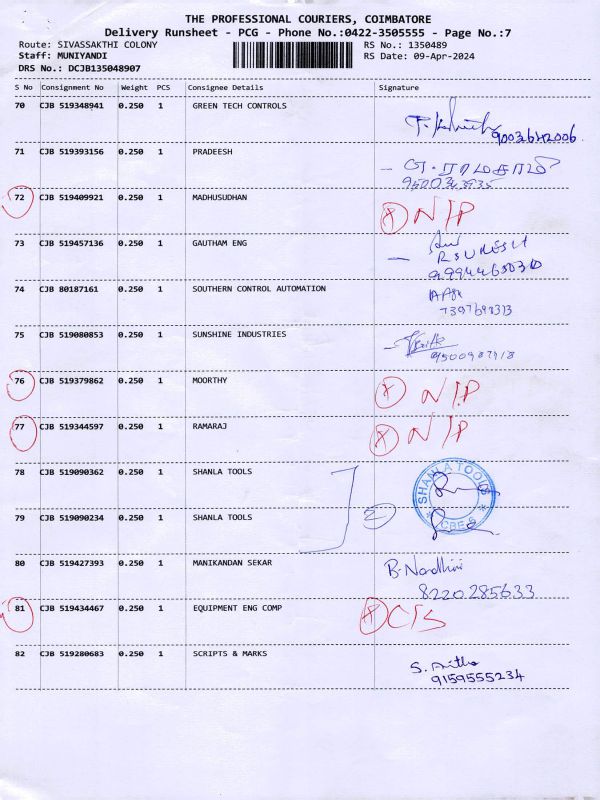 THE PROFESSIONAL COURIERS, COIMBATORE
Delivery Runsheet - PCG - Phone No.:0422-3505555 - Page No.:7
Route: SIVASSAKTHI COLONY
RS No.: 1350489
Staff: MUNIYANDI
RS Date: 09-Apr-2024
DRS No.: DCJB135048907
S No Consignment No Weight PCS Consignee Details Signature
70 CJB 519348941 0.250 1 GREEN TECH CONTROLS
9003642006
71 CJB 519393156 0.250 1 PRADEESH
9500343935
72 CJB 519409921 0.250 1 MADHUSUDHAN
N/P
73 CJB 519457136 0.250 1 GAUTHAM ENG
RSURESH
74 CJB 80187161 0.250 1 SOUTHERN CONTROL AUTOMATION
75 CJB 519080853 0.250 1 SUNSHINE INDUSTRIES
76 CJB 519379862 0.250 1 MOORTHY
N/P
77 CJB 519344597 0.250 1 RAMARAJ
N/P
78 CJB 519090362 0.250 1 SHANLA TOOLS
SHANLA TOOLS
2
79 CJB 519090234 0.250 1 SHANLA TOOLS
80 CJB 519427393 0.250 1 MANIKANDAN SEKAR
B. Nandhini
8220285633
81 CJB 519434467 0.250 1 EQUIPMENT ENG COMP
82 CJB 519280683 0.250 1 SCRIPTS & MARKS
S. Anitha
9159555234